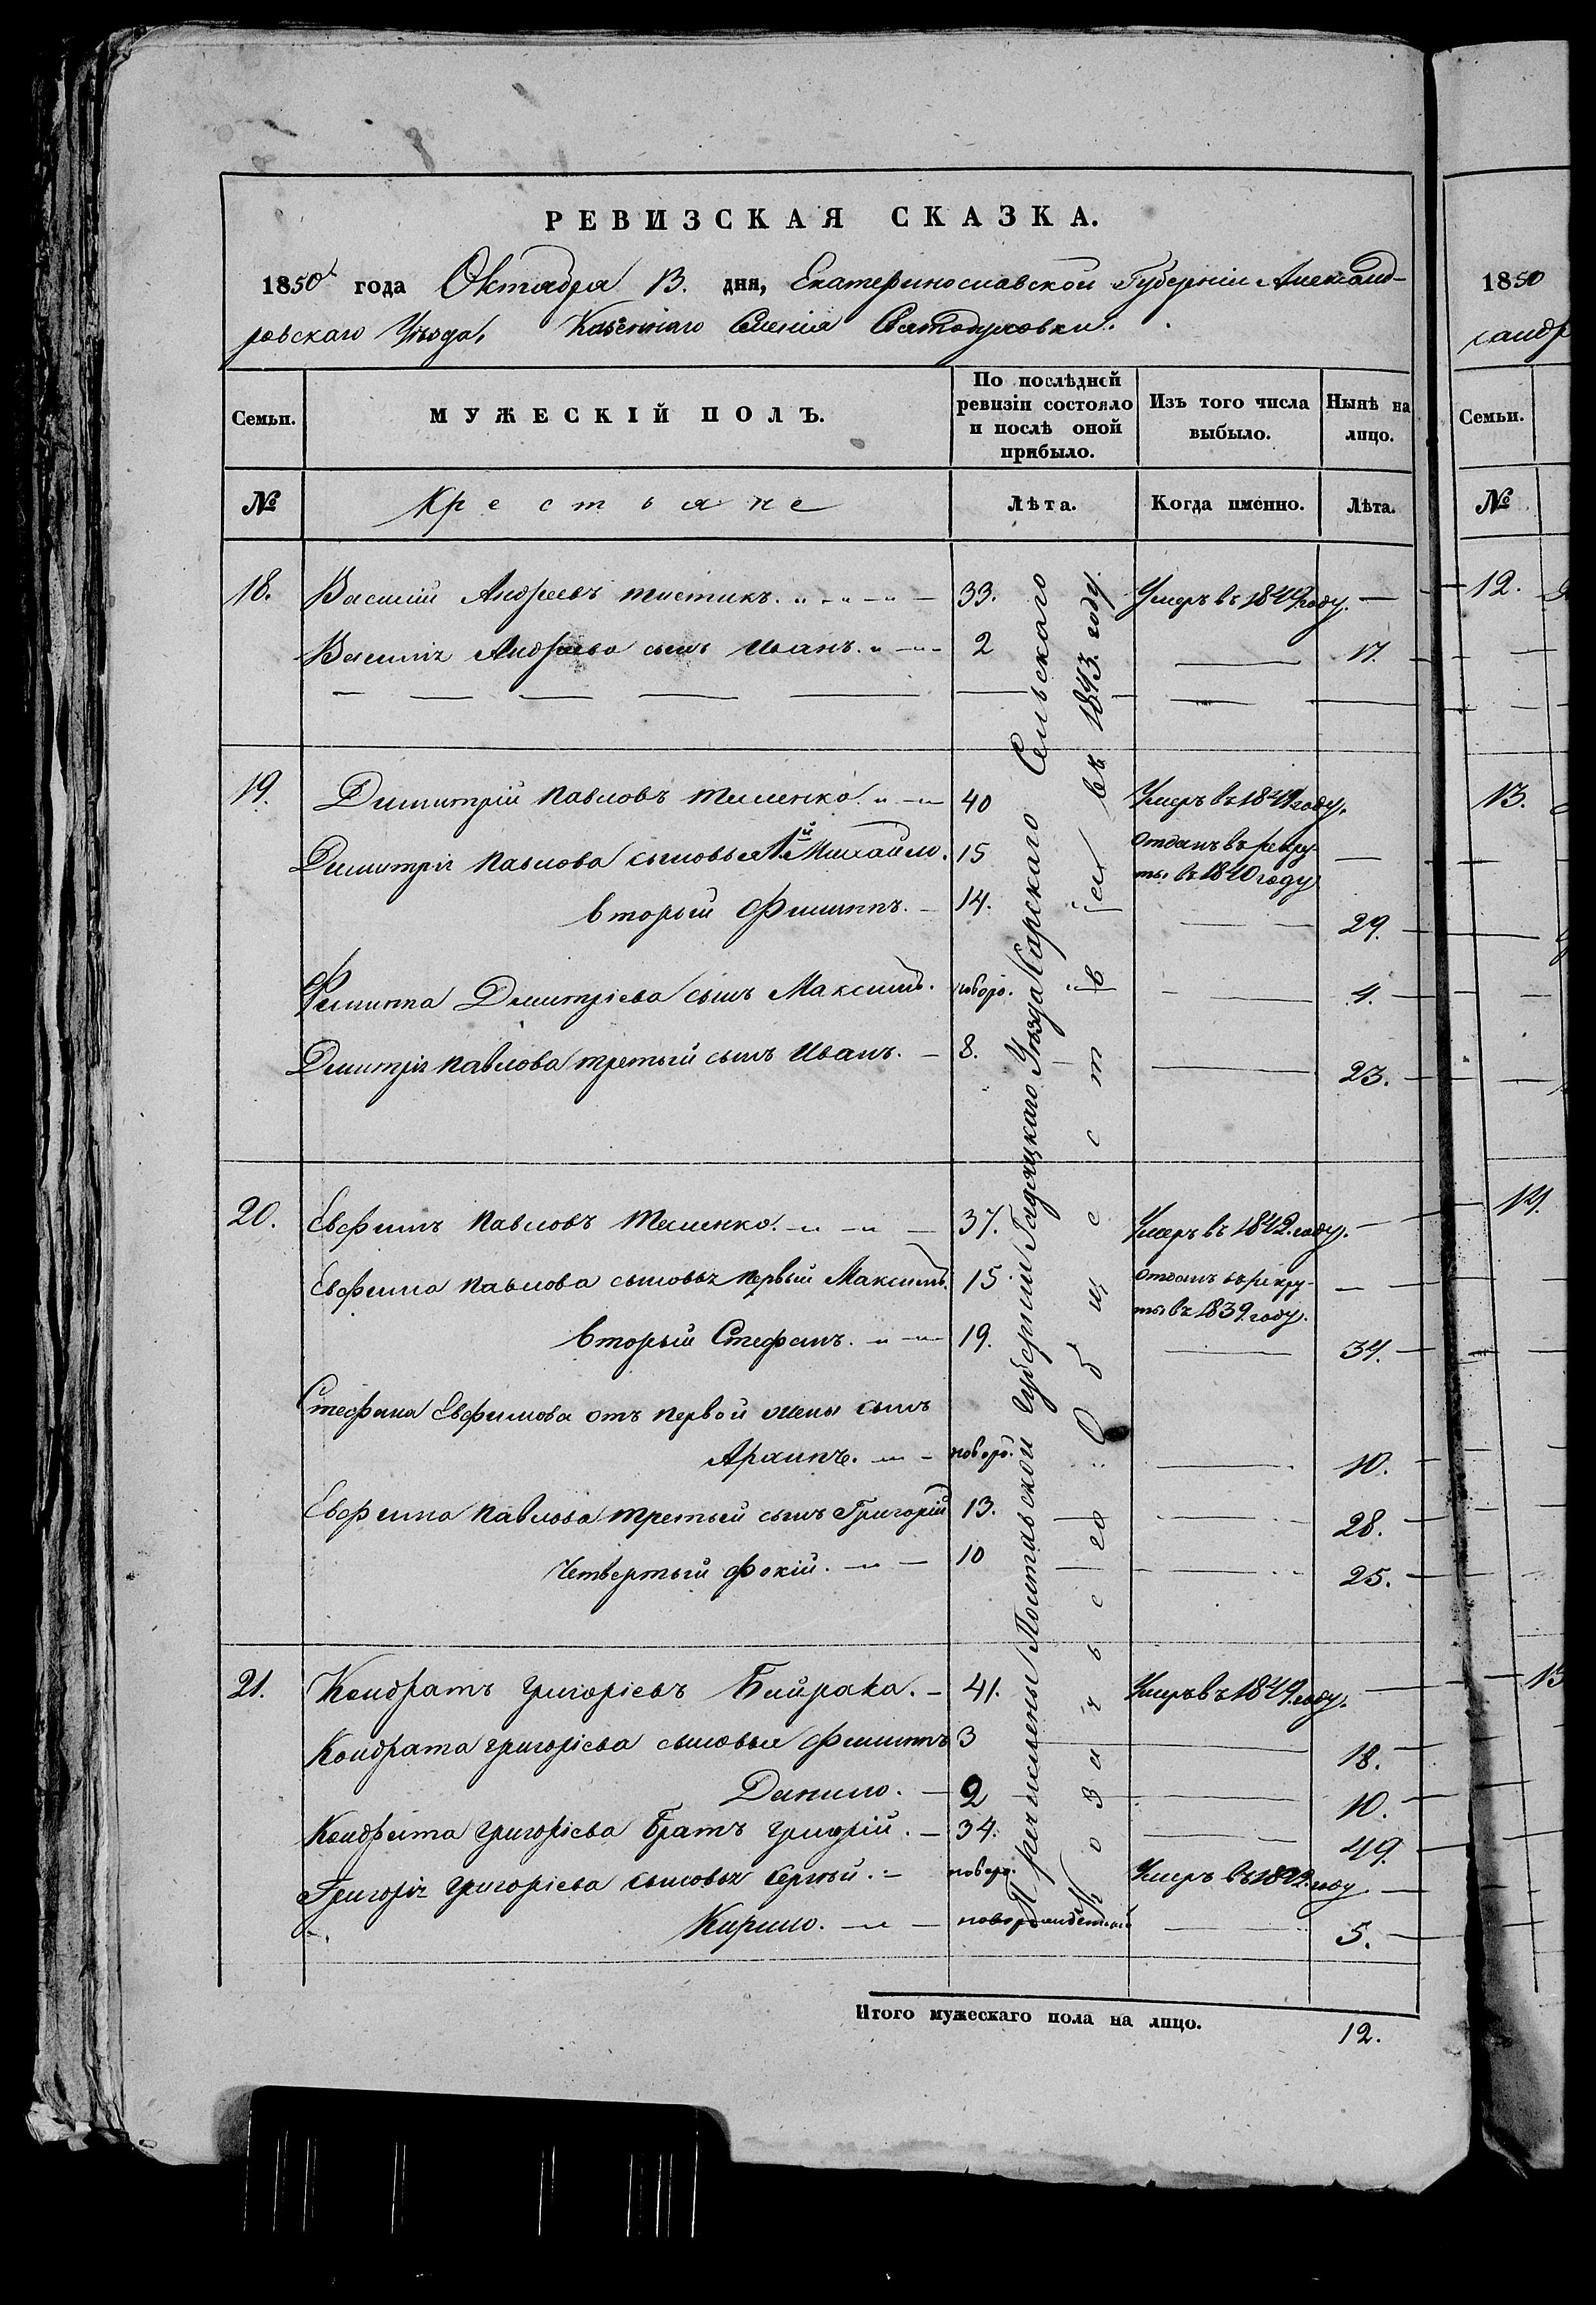 РЕВИЗСКАЯ СКАЗКА.
1850 года Октября 13. дня, Екатеринославской Губерніи Александ-
ровскаго Уѣзда, Казеннаго Селенія Святодуховки.
Семьи.
МУЖЕСКІЙ ПОЛЪ.
По послѣдней
ревизіи состояло
и послѣ оной
прибыло.
Изъ того числа
выбыло.
Нынѣ на
лицо.
№
Крестьяне
Лѣта.
Когда именно.
Лѣта.
18. Василій Андреевъ 33. Умеръ въ 1849 году.
Василія Андреева сынъ Иванъ. 2 17.
19. Димитрій Павловъ Теленко. 40 Умеръ въ 1841 году.
Димитрія Павлова сыновья 1й Михайло. 15 отданъ въ рекру-
ты въ 1840 году
вторый Филиппъ. 14. 29.
Филиппа Димитріева сынъ Максимъ. новоро. 4.
Димитрія Павлова третый сынъ Иванъ. 8. 23.
20. Евфимъ Павловъ Теленко. 37. Умеръ въ 1842. году.
Евфима Павлова сыновья первый Максимъ. 15. отданъ въ рекру-
ты въ 1839. году.
вторый Стефанъ. 19. 34.
Стефана Евфимова отъ первой жены сынъ
Архипъ. новоро. 10.
Евфима Павлова третый сынъ Григорій 13. 28.
Четвертый Фокій. 10 25.
21. Кондратъ Григорьевъ Байрака. 41. Умеръ въ 1849. году.
Кондрата Григорьева сыновья Филиппъ 3 18.
Данило. 2 10.
Кондрата Григорьева братъ Григорій. 34. 49.
Григорія Григорьева сыновья Сергѣй. новоро. Умеръ въ году
Кирило. новорожденный 5.
Перечислены Полтавской Губерніи Гадяцкаго Уѣзда Сельскаго
Общества въ 1843. году.
Итого мужескаго пола на лицо.
12.
1850
санд
Семьи.
№
12.
13.
14.
15